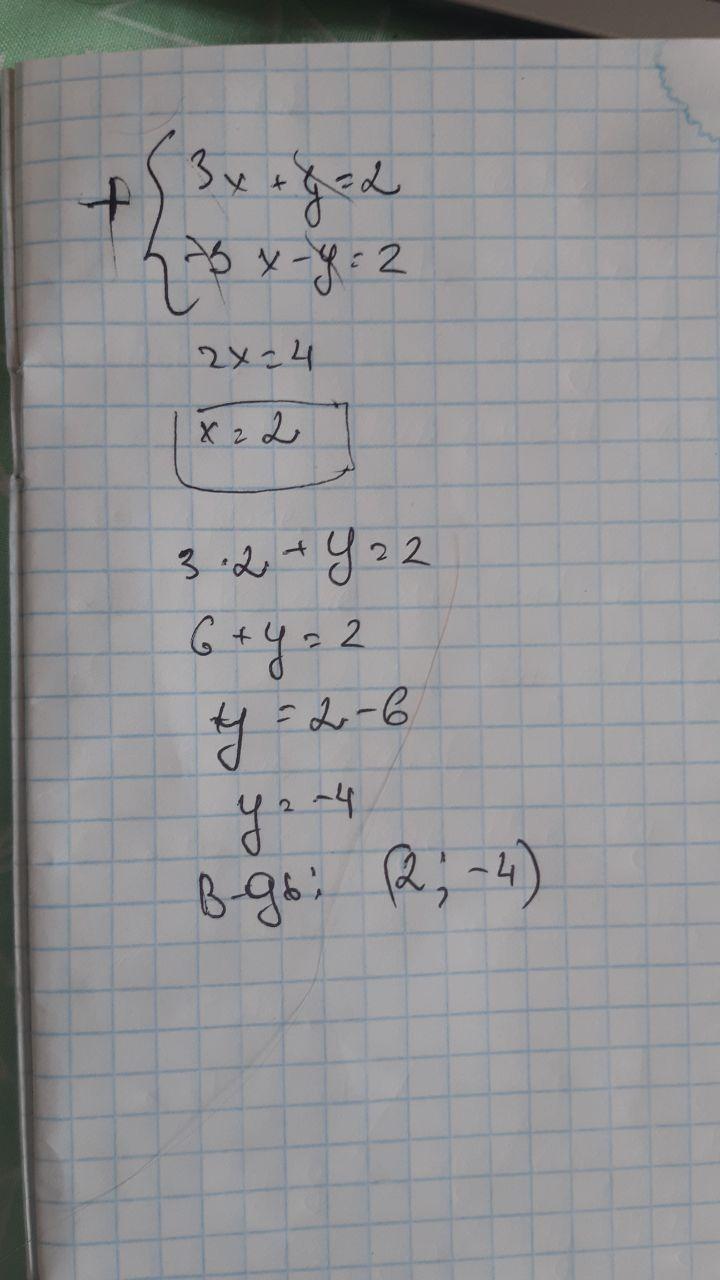 + { 3x + y = 2
-3 x - y = 2
2x = 4
x = 2
3 · 2 + y = 2
6 + y = 2
+y = 2 - 6
y = -4
В-дь: (2; -4)